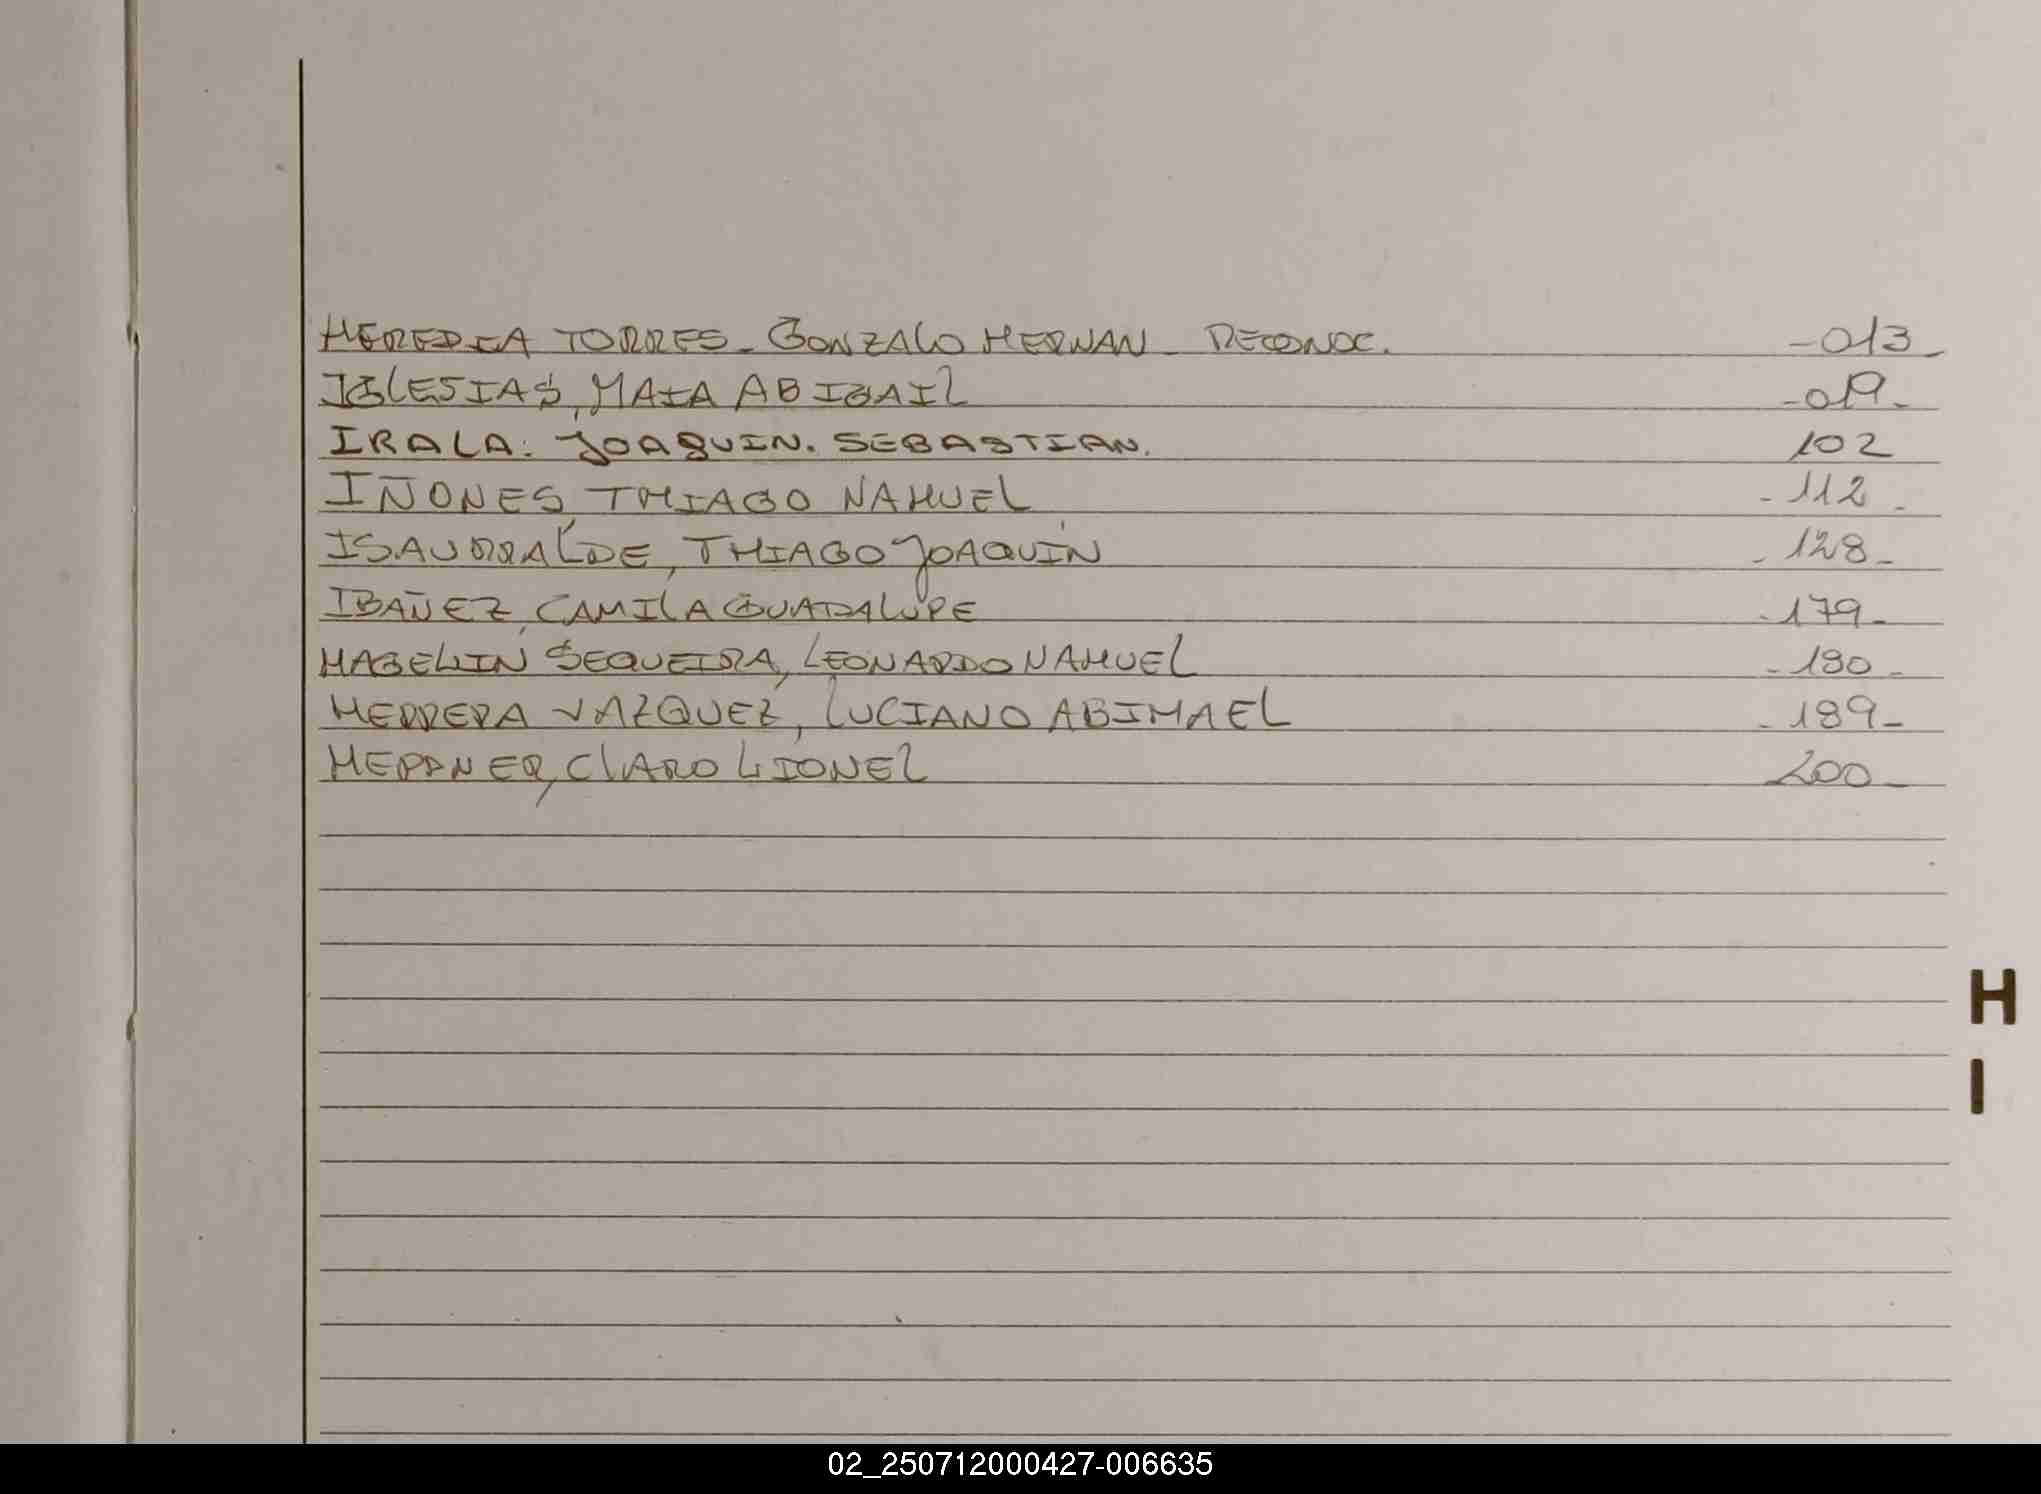 HEREDIA TORRES - GONZALO HERNAN - RECONOC. -013-
IGLESIAS, MAIA ABIGAIL -019-
IRALA. JOAQUIN. SEBASTIAN. 102
IÑONES, THIAGO NAHUEL -112-
ISAURRALDE, THIAGO JOAQUIN -128-
IBAÑEZ, CAMILA GUADALUPE -179-
SEQUEIRA, LEONARDO NAHUEL -180-
HERRERA VAZQUEZ, LUCIANO ABIMAEL -189-
HEPPNER, CLARO LIONEL 200-
H
I
02_250712000427-006635